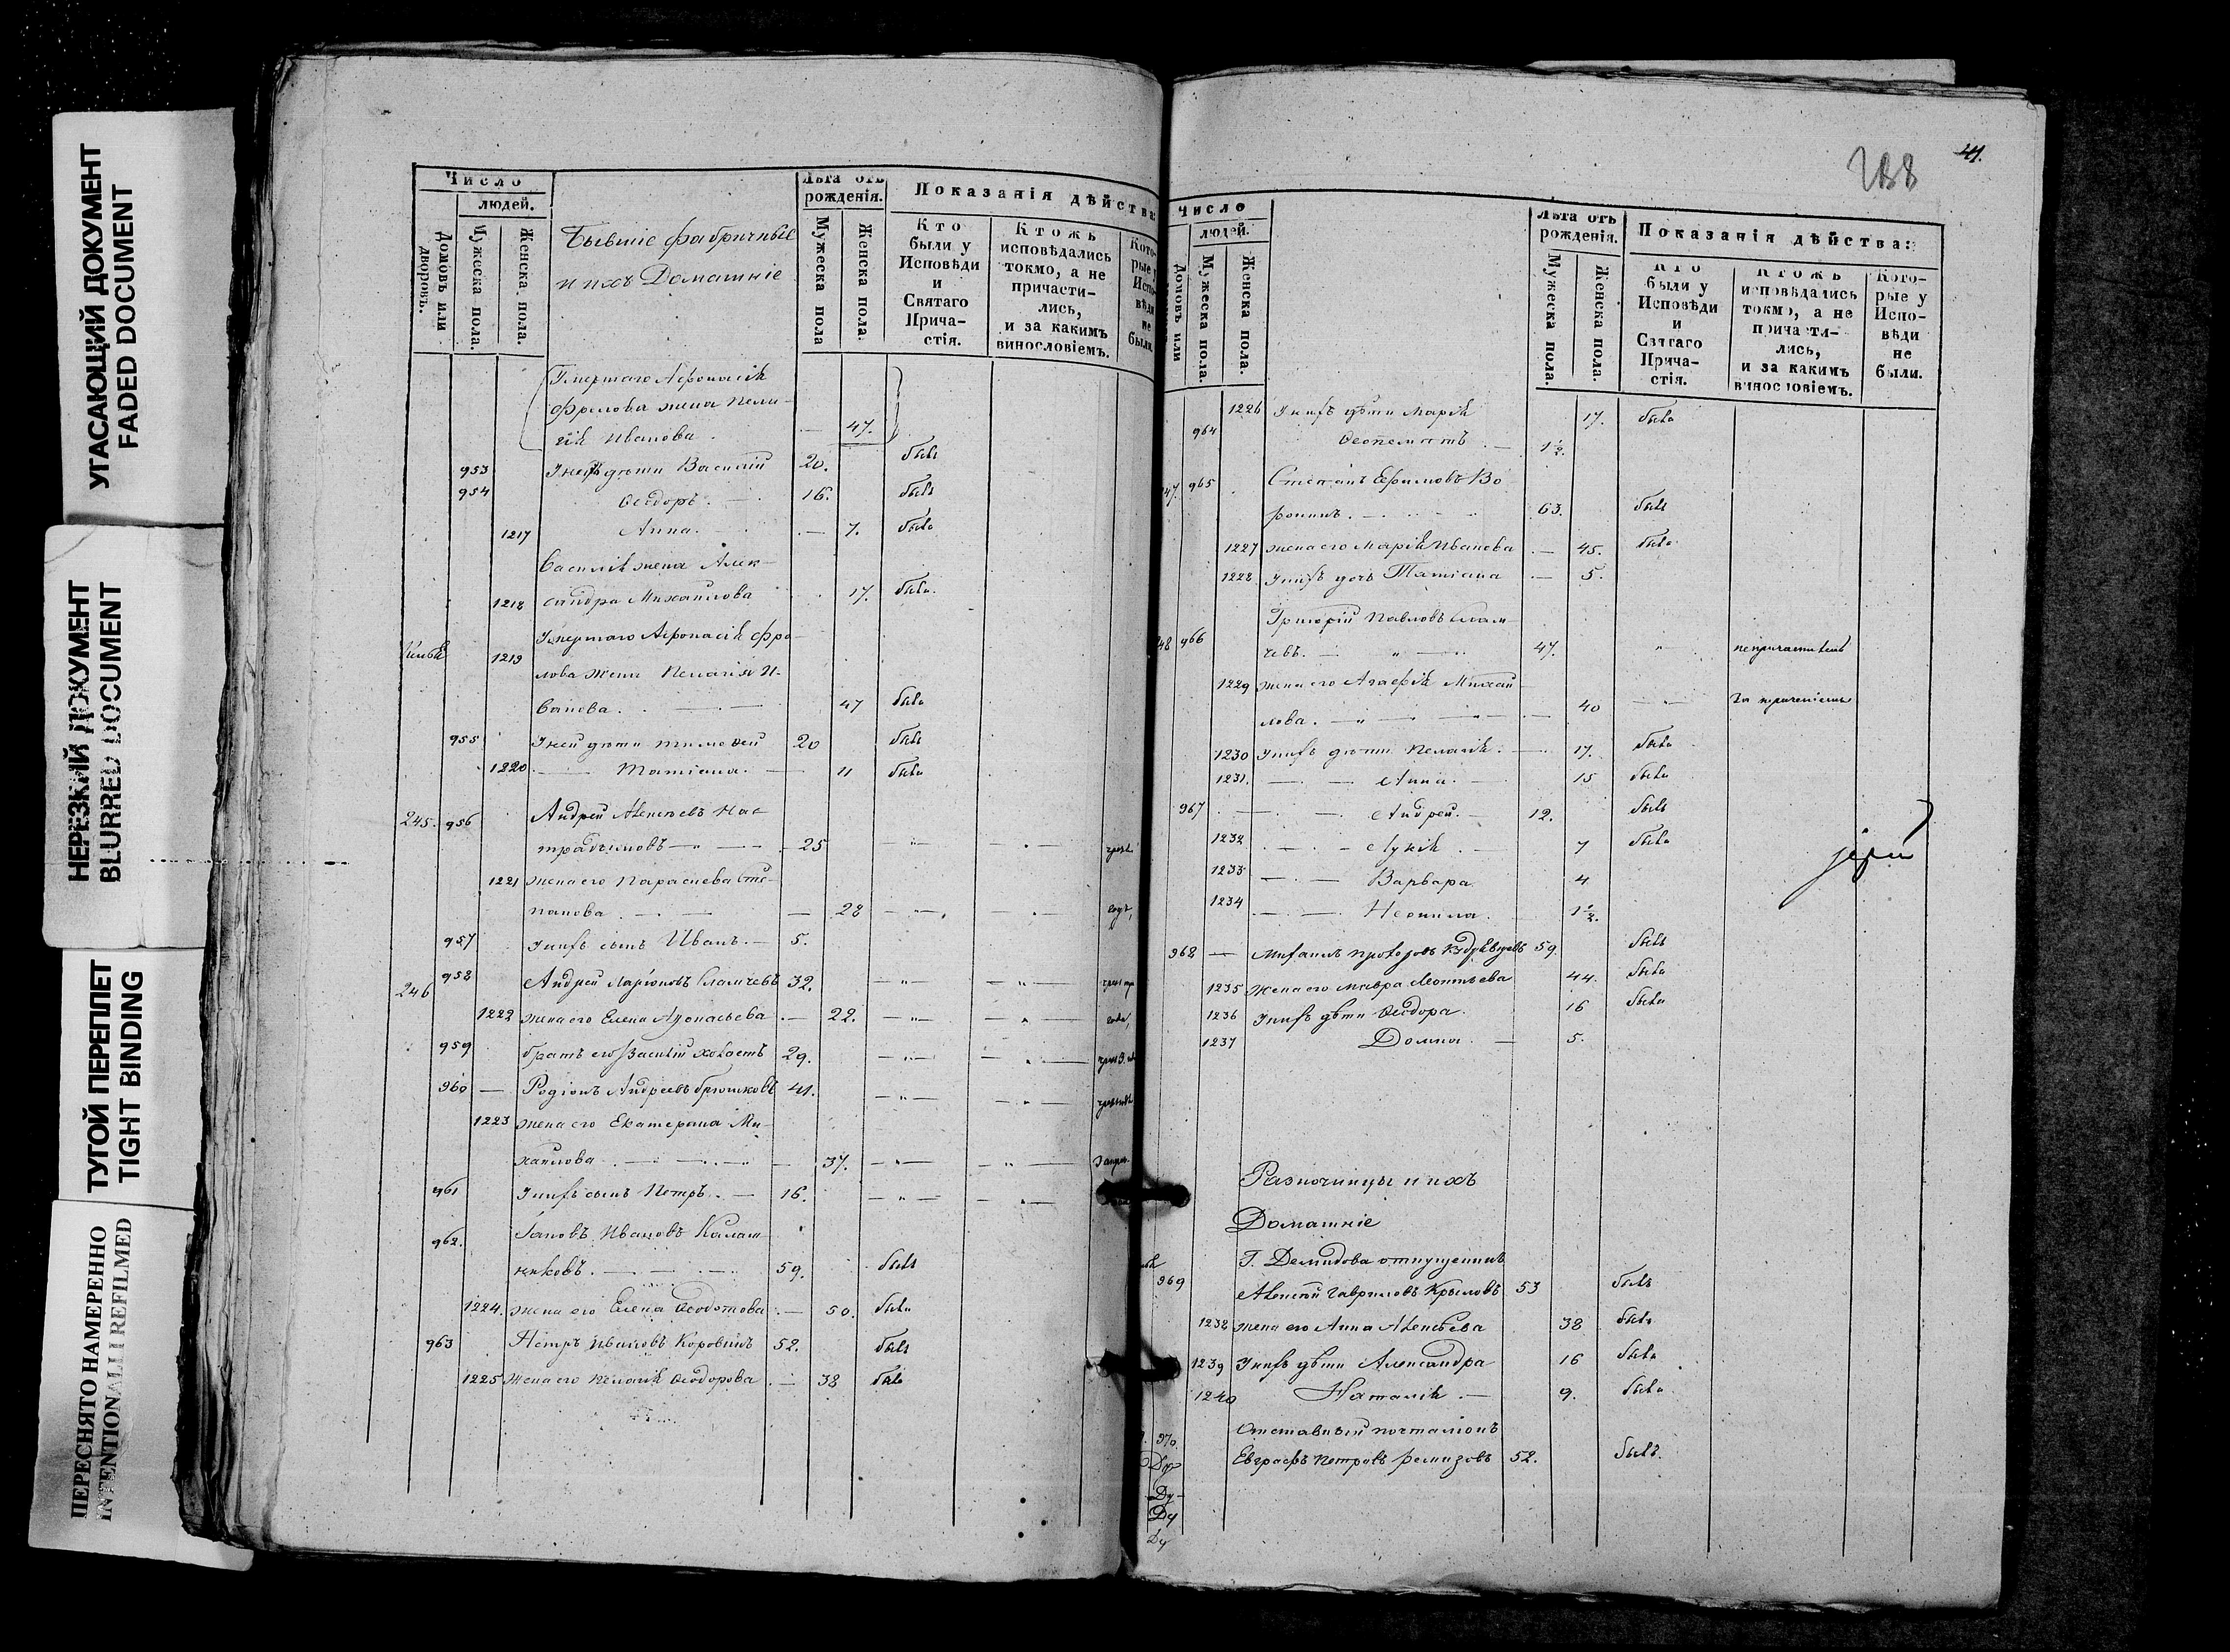 УГАСАЮЩИЙ ДОКУМЕНТ
FADED DOCUMENT
НЕРЕЗКИЙ ДОКУМЕНТ
BLURRED DOCUMENT
ТУГОЙ ПЕРЕПЛЕТ
TIGHT BINDING
ПЕРЕСНЯТО НАМЕРЕННО
INTENTIONALLY REFILMED
Число
людей.
Домовъ или дворовъ.
Мужеска пола.
Женска пола.
Бывшіе фабричные
и ихъ Домашніе
Лѣта отъ рожденія.
Мужеска пола
Женска пола.
Показанія дѣйства:
Кто были у Исповѣди и Святаго Прича-стія.
Ктожъ исповѣдались токмо, а не причасти-лись, и за какимъ винословіемъ.
Кото-рые у Испо-вѣди не были.
Умершаго Афонасія
Фролова жена Пела-
гія Иванова . — 47.
953 У неяжъ дѣти Василій 20. былъ
954 Ѳеодоръ . — 16. былъ
1217 Анна . — 7. была
Василія жена Алек-
1218 сандра Михайлова 17. была
1219 Умершаго Афонасія Фро-
лова жена Пелагія И-
ванова . — 47 была
955 У ней дѣти Тимоѳей 20 былъ
1220 — Татіана . — 11 была
245. 956 Андрей Алексѣевъ Кас-
— 25
1221 жена его Параскева Сте-
панова . — 28
957 У нихъ сынъ Иванъ . — 5.
246 958 Андрей Ларіоновъ 32.
1222 жена его Елена Афонасьева . — 22.
959 братъ его Василій холостъ 29.
960 — Родіонъ Андреевъ Брюшковъ 41.
1223 жена его Екатерина Ми-
хайлова . — 37.
961 У нихъ сынъ Петръ . — 16.
962. Іаковъ Ивановъ Калаш-
никовъ . — 59. былъ
1224. жена его Елена Ѳеодотова . — 50. была
963 Петръ Ивановъ Коровинъ 52. былъ
1225 жена его Пелагія Ѳеодорова . — 38 была
288
41.
Число
людей.
Домовъ или
Мужеска пола.
Женска пола.
Лѣта отъ рожденія.
Мужеска пола.
Женска пола.
Показанія дѣйства:
Кто были у Исповѣди и Святаго Прича-стія.
Ктожъ исповѣдались токмо, а не причасти-лись, и за какимъ винословіемъ.
Кото-рые у Испо-вѣди не были.
1226 У нихъ дѣти Марія 17. была
964 Ѳеопемптъ . — 1½.
47. 965 Степанъ Ефимовъ Во-
ронинъ . — 63. былъ
1227 жена его Марія Иванова . — 45. была
1228. У нихъ дочь Татіана . — 5.
48 966 Григорій Павловъ
47.
1229 жена его Агафія Михай-
лова . — 40
1230 У нихъ дѣти Пелагія . — 17. была
1231. — Анна . — 15 была
967 — Андрей . — 12. былъ
1232 — Лукія . — 7 была
1233 — Варвара . 4
1234 — Неонила . 1½.
968 — Михаилъ 59. былъ
1235 жена его Мавра Леонтьева 44. была
1236 У нихъ дѣти Ѳеодора . 16 была
1237 Домна . — 5.
Разночинцы и ихъ
Домашніе
Г. Демидова отпущенникъ
969 Алексѣй Гавриловъ Крыловъ 53 былъ
1238 жена его Анна Алексѣева 38 была
1239 У нихъ дѣти Александра 16 была
1240 Наталія . — 9. была
Отставный почталіонъ
970. Евграфъ Петровъ Ремизовъ 52. былъ.